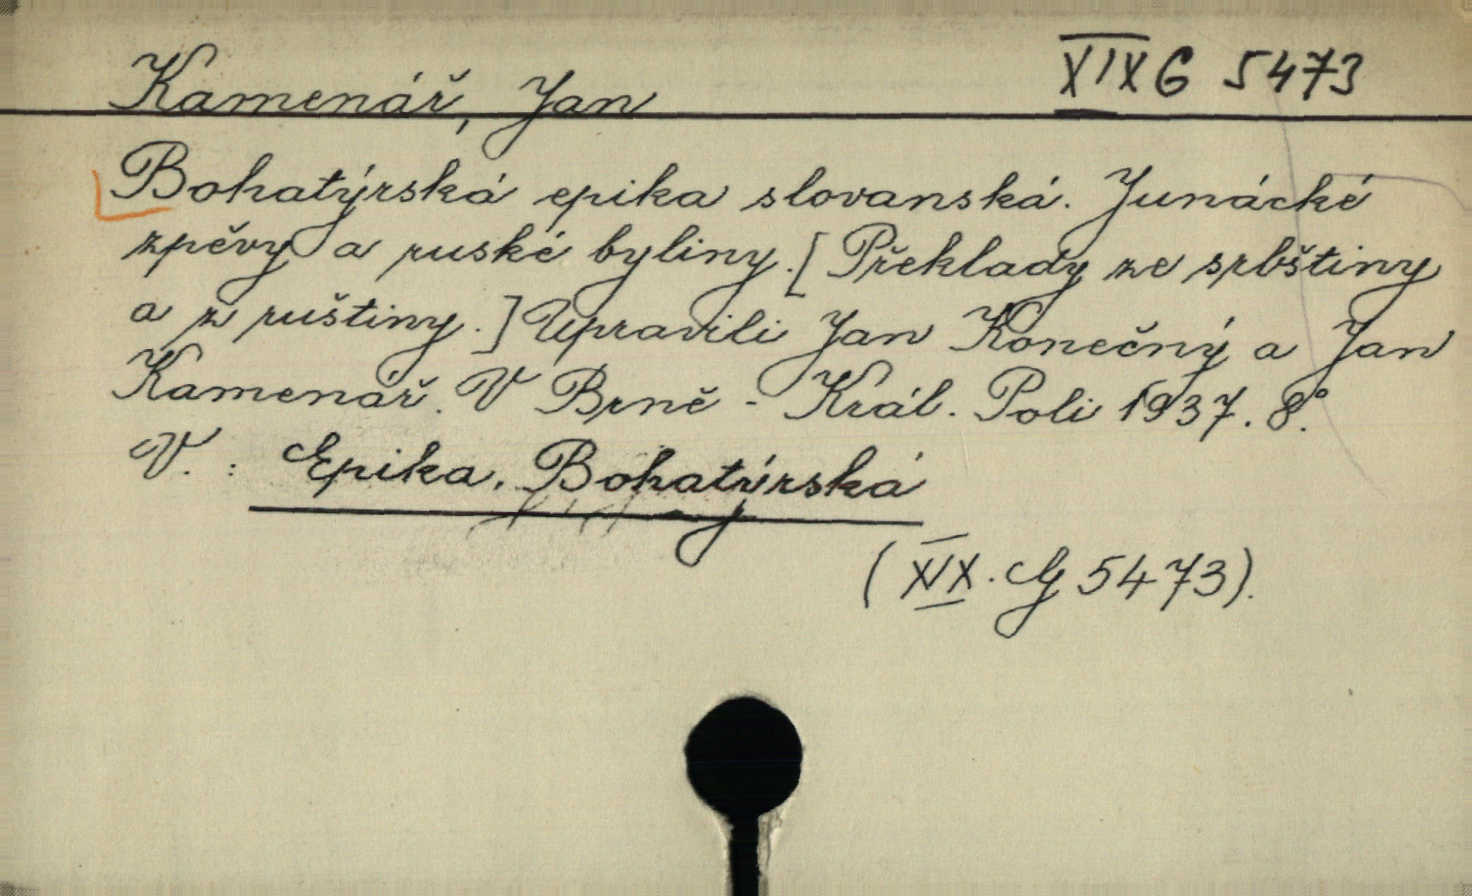 Kamenář, Jan XIX G 5473
Bohatýrská epika slovanská. Junácké
zpěvy a ruské byliny. [Překlady ze srbštiny
a z ruštiny.] Upravili Jan Konečný a Jan
Kamenář. V Brně - Král. Poli 1937. 8°.
V. : Epika. Bohatýrská
(XIX. G 5473).